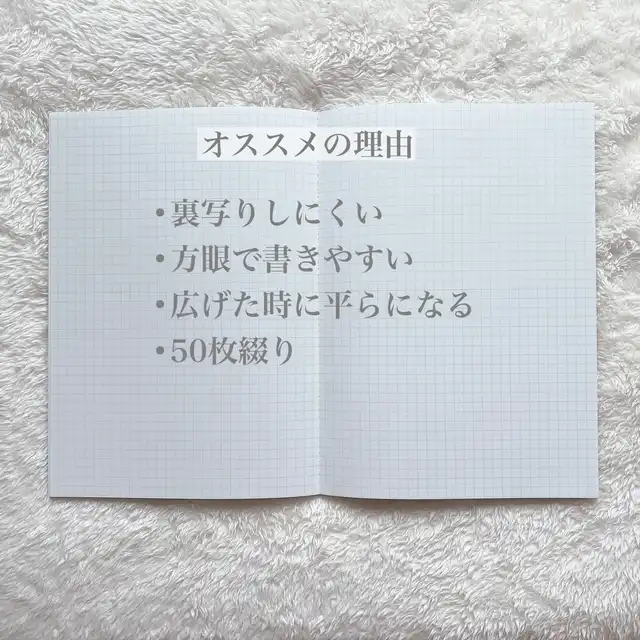 オススメの理由
•裏写りしにくい
•方眼で書きやすい
•広げた時に平らになる
•50枚綴り